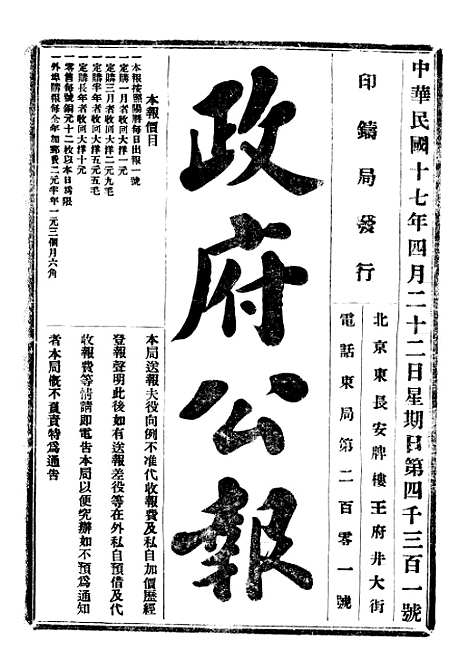 中華民國十七年四月二十二日星期日第四千三百一號
印鑄局發行
北京東長安牌樓王府井大街
電話東局第二百零一號
政府公報
本報價目
一本報按照陽曆每日出報一號
一定購一月者收回大洋一元
一定購三月者收回大洋二元九毛
一定購半年者收回大洋五元五毛
一定購長年者收回大洋十元
一零售每號銅元十二枚以本日爲限
一外埠購報每全年加郵費二元半年一元三個月六角
本局送報夫役向例不准代收報費及私自加價歷經
登報聲明此後如有送報差役等在外私自預借及代
收報費等情請即電告本局以便究辦如不預爲通知
者本局概不負責特爲通告